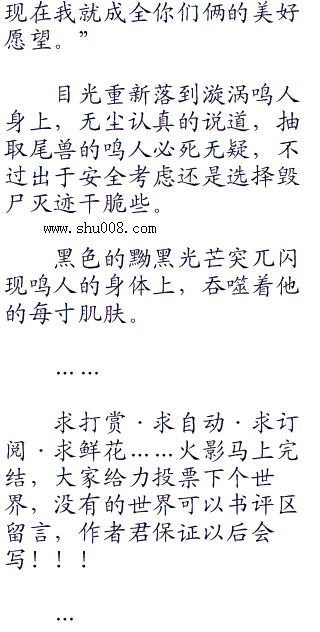 现在我就成全你们俩的美好
愿望。”
目光重新落到漩涡鸣人
身上，无尘认真的说道，抽
取尾兽的鸣人必死无疑，不
过出于安全考虑还是选择毁
尸灭迹干脆些。
www.shu008.com
黑色的黝黑光芒突兀闪
现鸣人的身体上，吞噬着他
的每寸肌肤。
……
求打赏·求自动·求订
阅·求鲜花……火影马上完
结，大家给力投票下个世
界，没有的世界可以书评区
留言，作者君保证以后会
写！！！
…